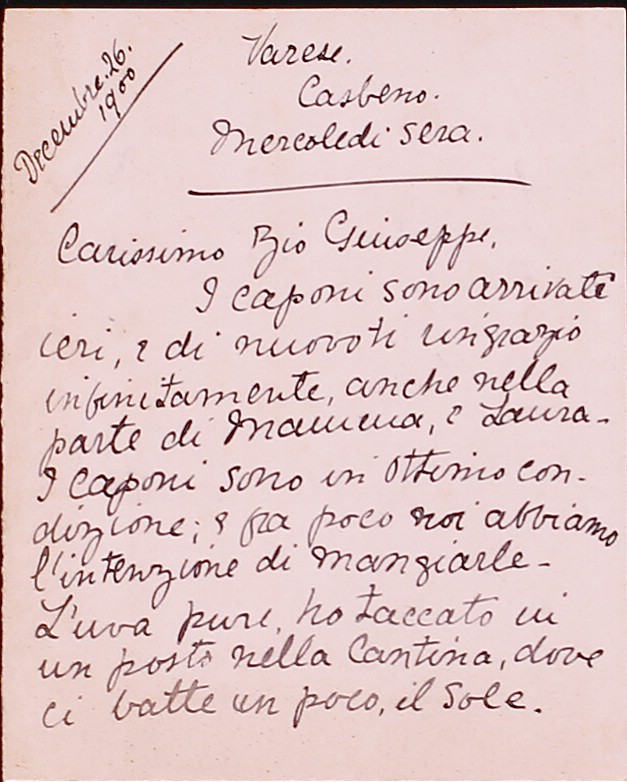 Decembre. 26.
1900
Varese.
Casbeno.
Mercoledi sera.
Carissimo Zio Giuseppe,
I caponi sono arrivati
ieri, e di nuovo ti ringrazio
infinitamente, anche nella
parte di Mamma, e Laura.
I caponi sono in ottimo con-
dizione; e fra poco noi abbiamo
l'intenzione di mangiarle.
L'uva pure, ho taccato in
un posto nella Cantina, dove
ci batte un poco, il Sole.